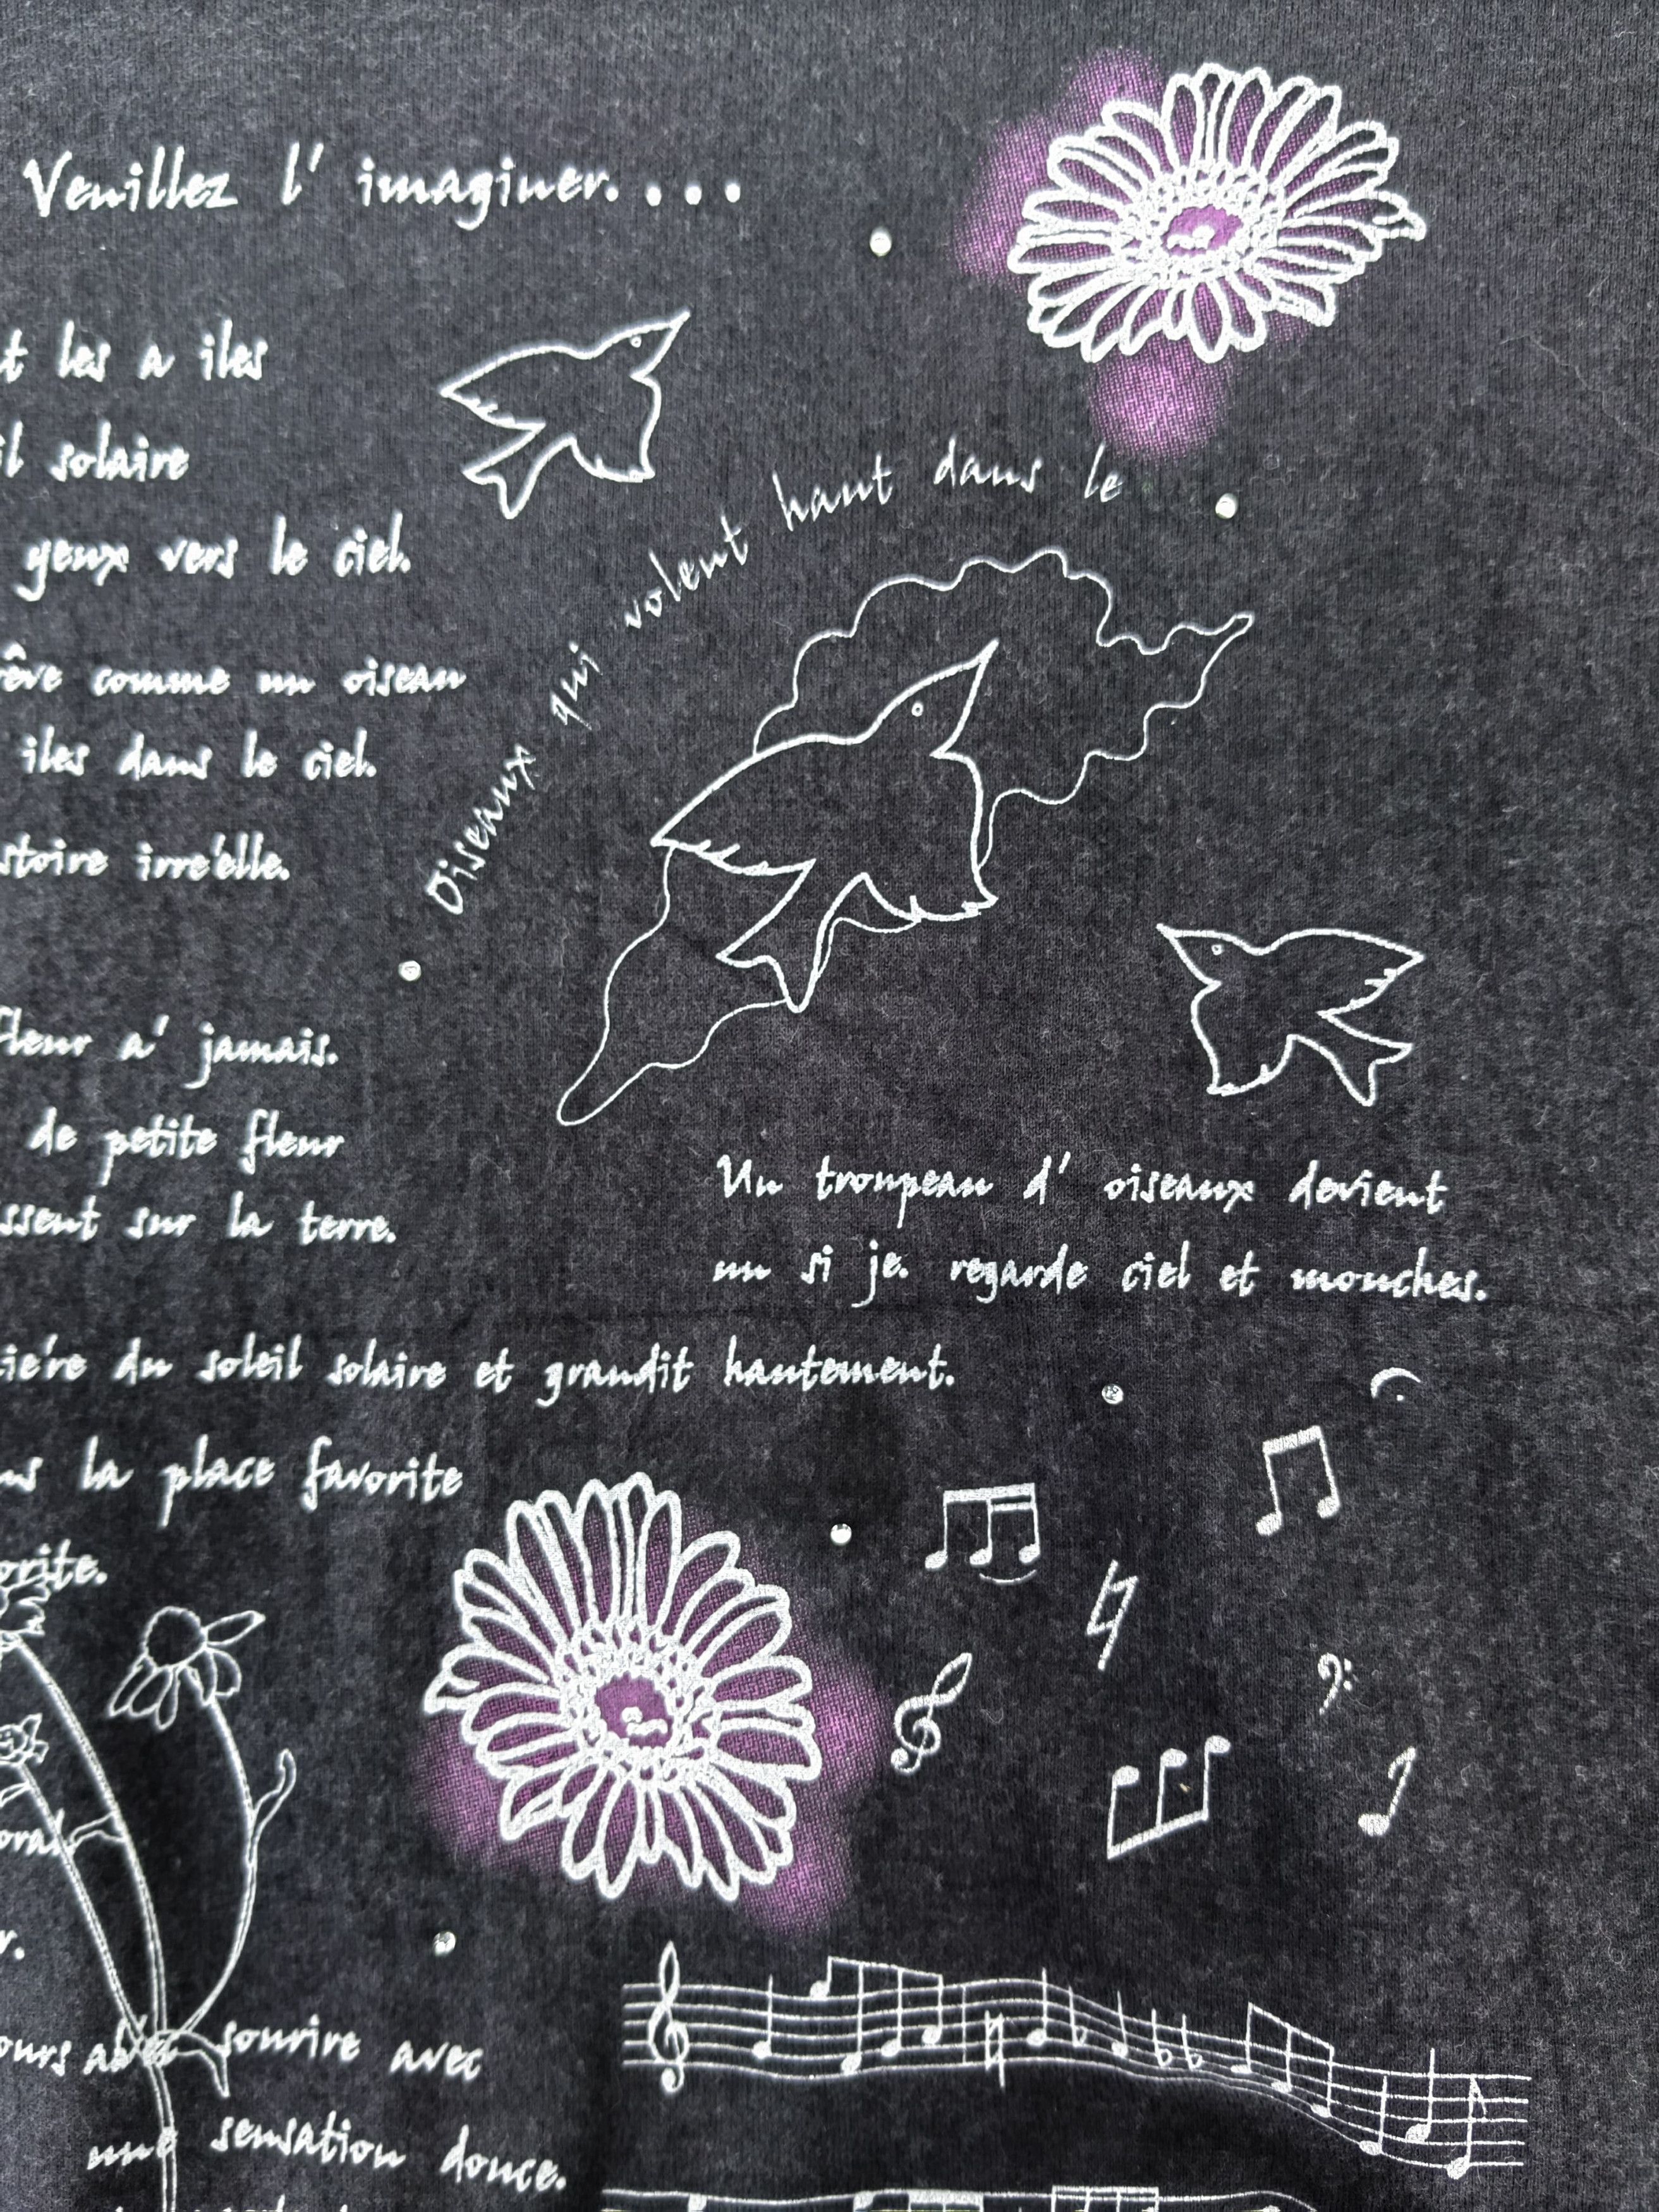 Veuillez l' imaginer....
t les a iles
il solaire
yeux vers le ciel.
Oiseaux qui volent haut dans le
rêve comme un oiseau
iles dans le ciel.
stoire irre'elle.
fleur a' jamais.
de petite fleur
ssent sur la terre.
Un troupeau d' oiseaux devient
un si je. regarde ciel et mouches.
ie're du soleil solaire et grandit hautement.
ns la place favorite
orite.
ora
r.
ours avec sourire avec
une sensation douce.